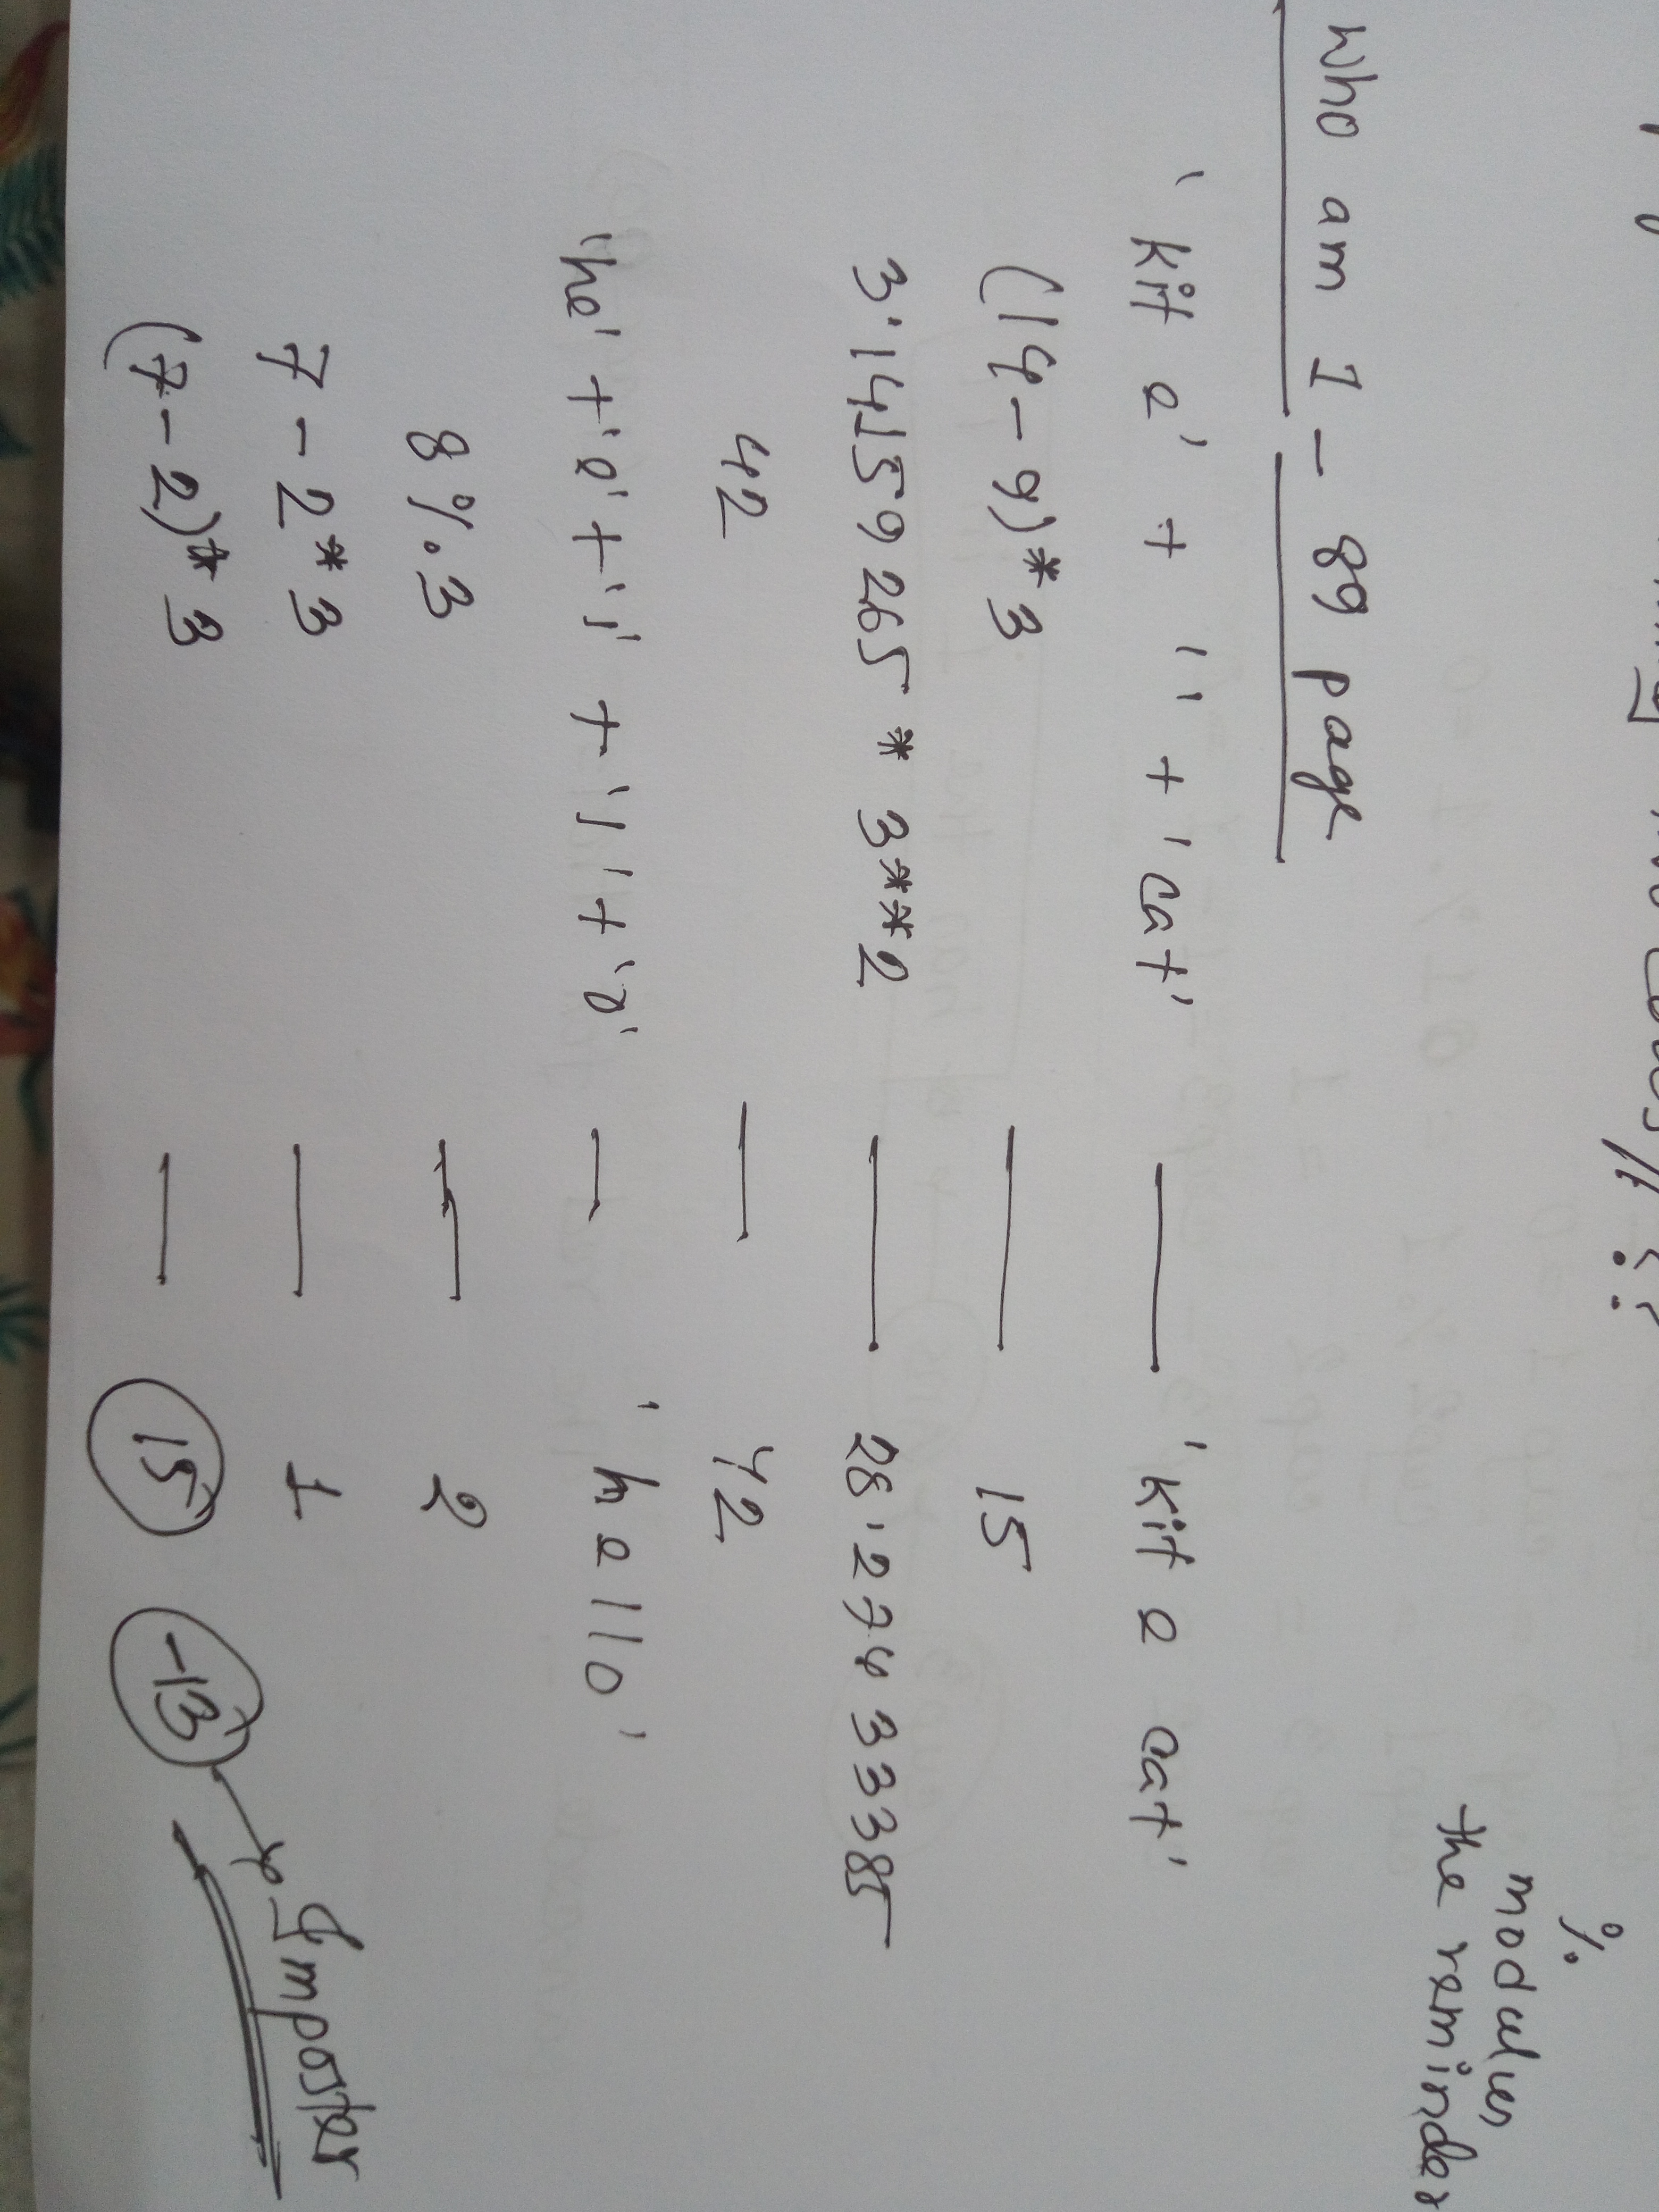 %
modulus
the reminder
Who am I - 89 page
'kit e' + ' ' + 'cat' — 'kit e cat'
(14-9)*3 — 15
3.14159265 * 3**2 — 28.274 33385
42 — 42
'he' + 'e' + 'l' + 'l' + 'o' — 'hello'
8%3 — 2
7-2*3 — 1
Imposter
(7-2)*3 — 15 -13